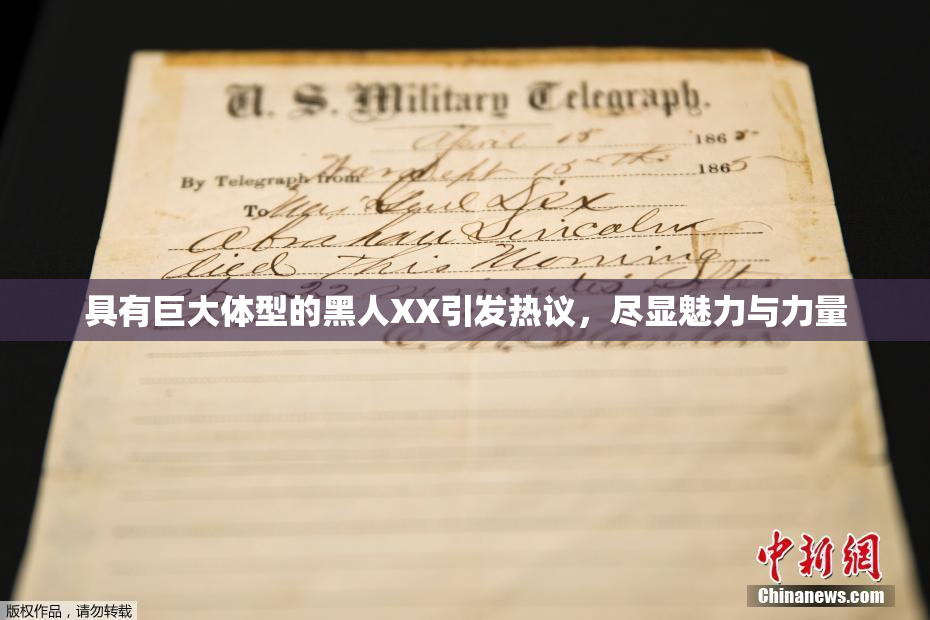 U. S. Military Telegraph.
April 15 1865
By Telegraph from War Dept 15th 1865
To Maj Genl Dix
Abraham Lincoln
died This Morning
at 22 minutes after
具有巨大体型的黑人XX引发热议，尽显魅力与力量
E. M. Stanton
中新网
Chinanews.com
版权作品，请勿转载